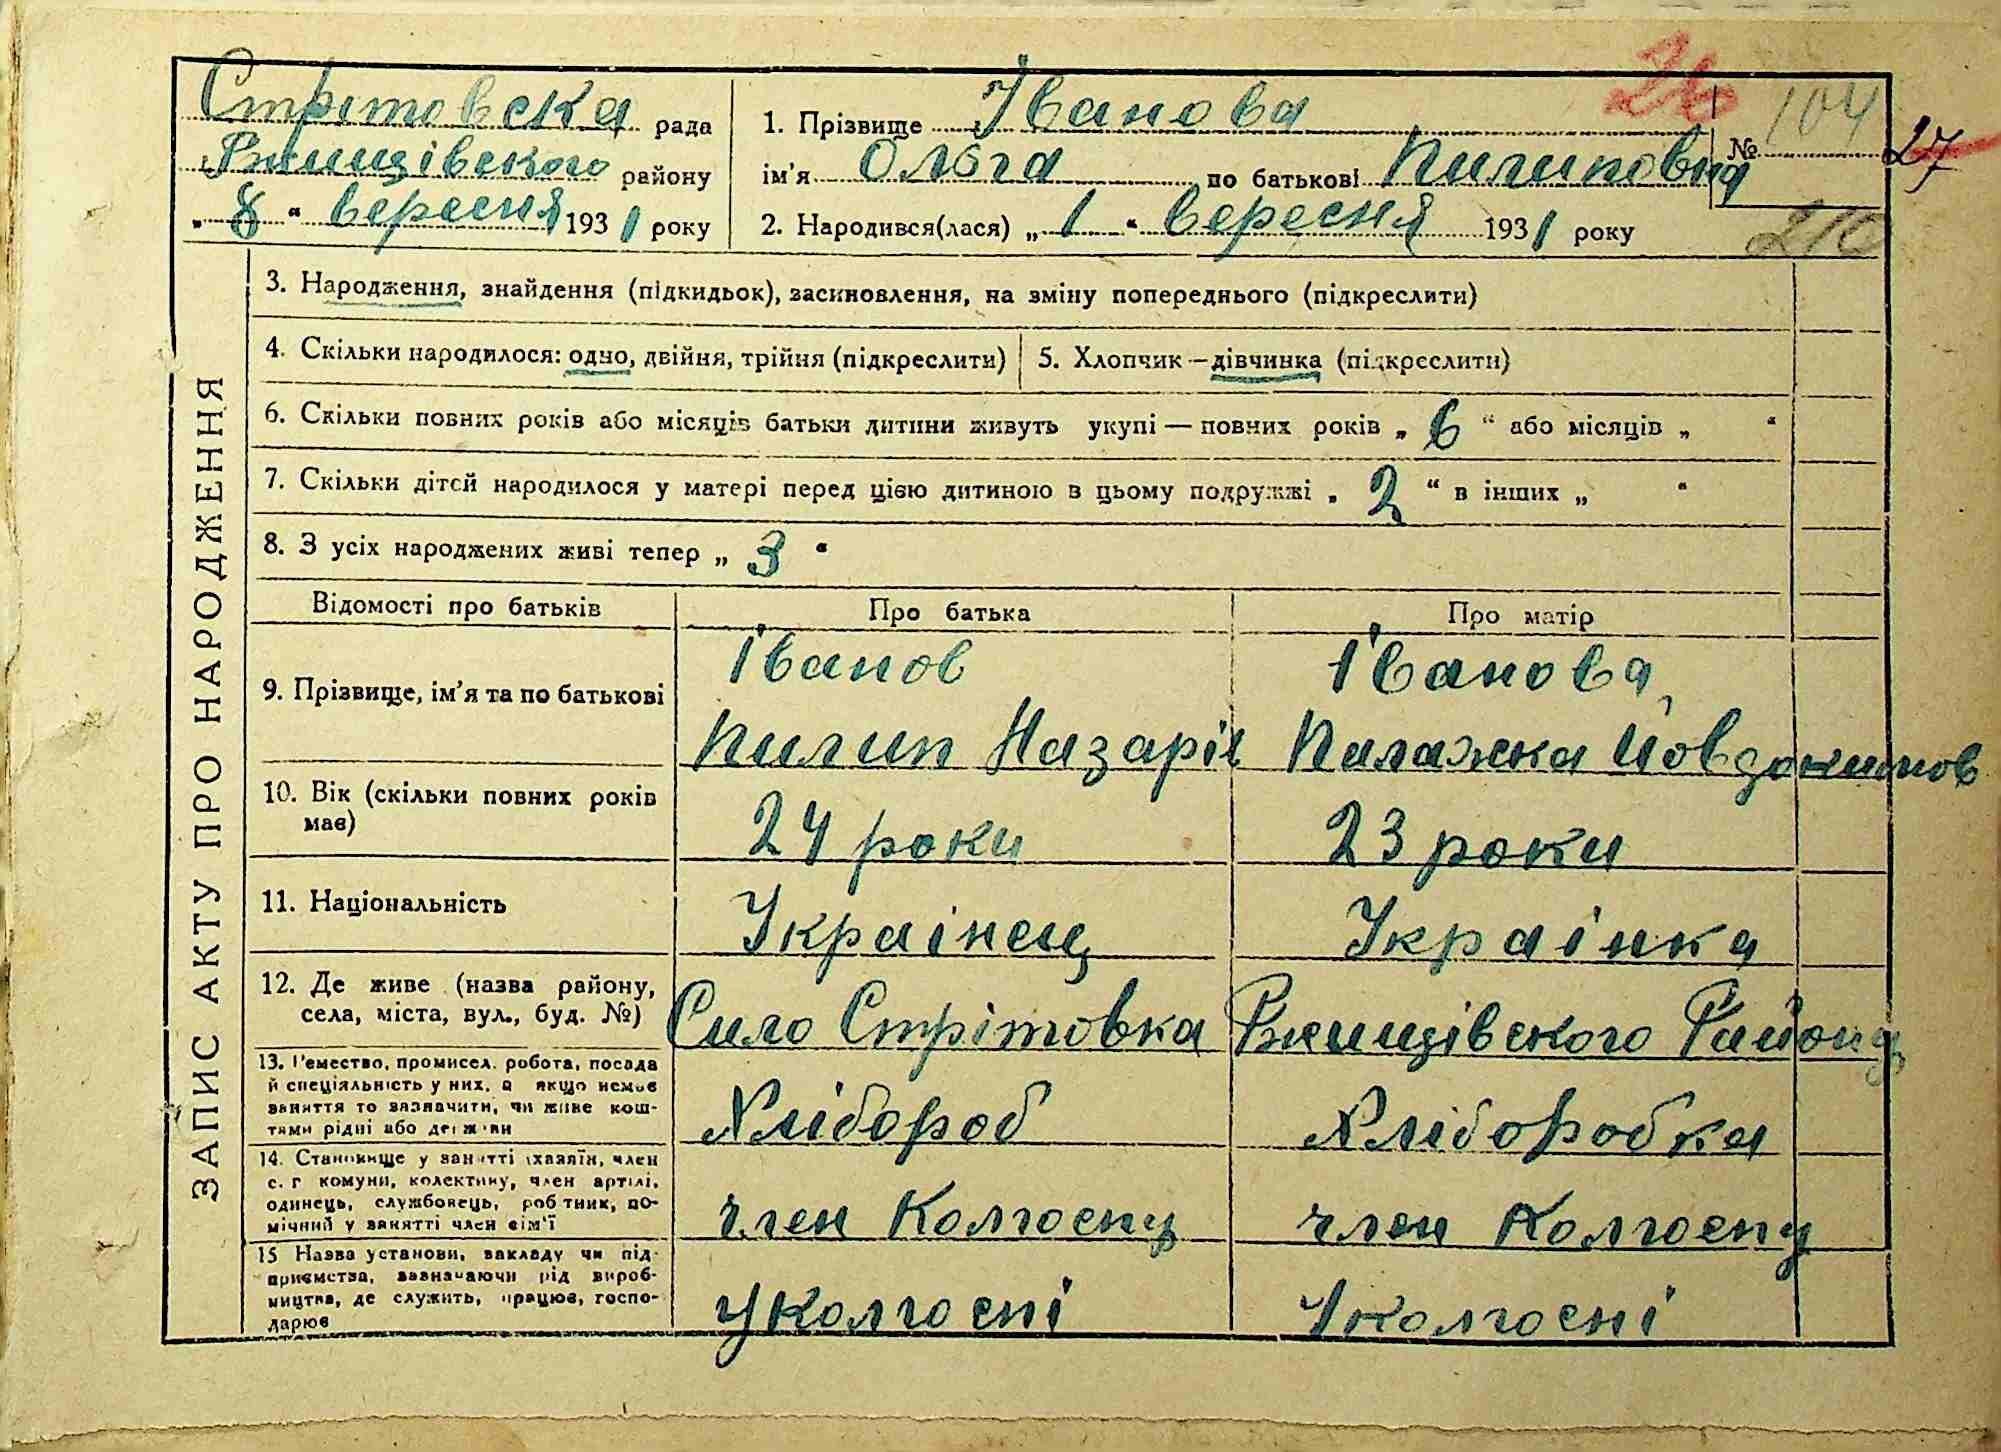 Стрітовска рада
Ржищівского району
„ 8 “ вересня 1931 року
1. Прізвище Іванова
ім’я Ольга по батькові Пилиповна
№ 104
27
26
2. Народився(лася) „ 1 “ вересня 1931 року
210
ЗАПИС АКТУ ПРО НАРОДЖЕННЯ
3. Народження, знайдення (підкидьок), засиновлення, на зміну попереднього (підкреслити)
4. Скільки народилося: одно, двійня, трійня (підкреслити)
5. Хлопчик — дівчинка (підкреслити)
6. Скільки повних років або місяців батьки дитини живуть укупі — повних років „ 6 “ або місяців „ “
7. Скільки дітей народилося у матері перед цією дитиною в цьому подружжі „ 2 “ в інших „ “
8. З усіх народжених живі тепер „ 3 “
Відомості про батьків
Про батька
Про матір
9. Прізвище, ім’я та по батькові
Іванов
Пилип Назарів
Іванова,
Палажка Йовдокимов
10. Вік (скільки повних років
має)
24 роки
23 роки
11. Національність
Українец
Українка
12. Де живе (назва району,
села, міста, вул., буд. №)
Сило Стрітовка
Ржищівского Району
13. Ремество, промисел, робота, посада
й спеціяльність у них, а якщо немає
заняття то зазначити, чи живе кош-
тами рідні або держави
Хлібороб
Хліборобка
14. Становище у занятті (хазяїн, член
с.г комуни, колективу, член артілі,
одинець, службовець, робітник, по-
мічний у занятті член сім’ї
член Колгоспу
член Колгоспу
15 Назва установи, закладу чи під-
приємства, зазначаючи рід вироб-
ництва, де служить, працює, госпо-
дарює
у колгоспі
у колгоспі